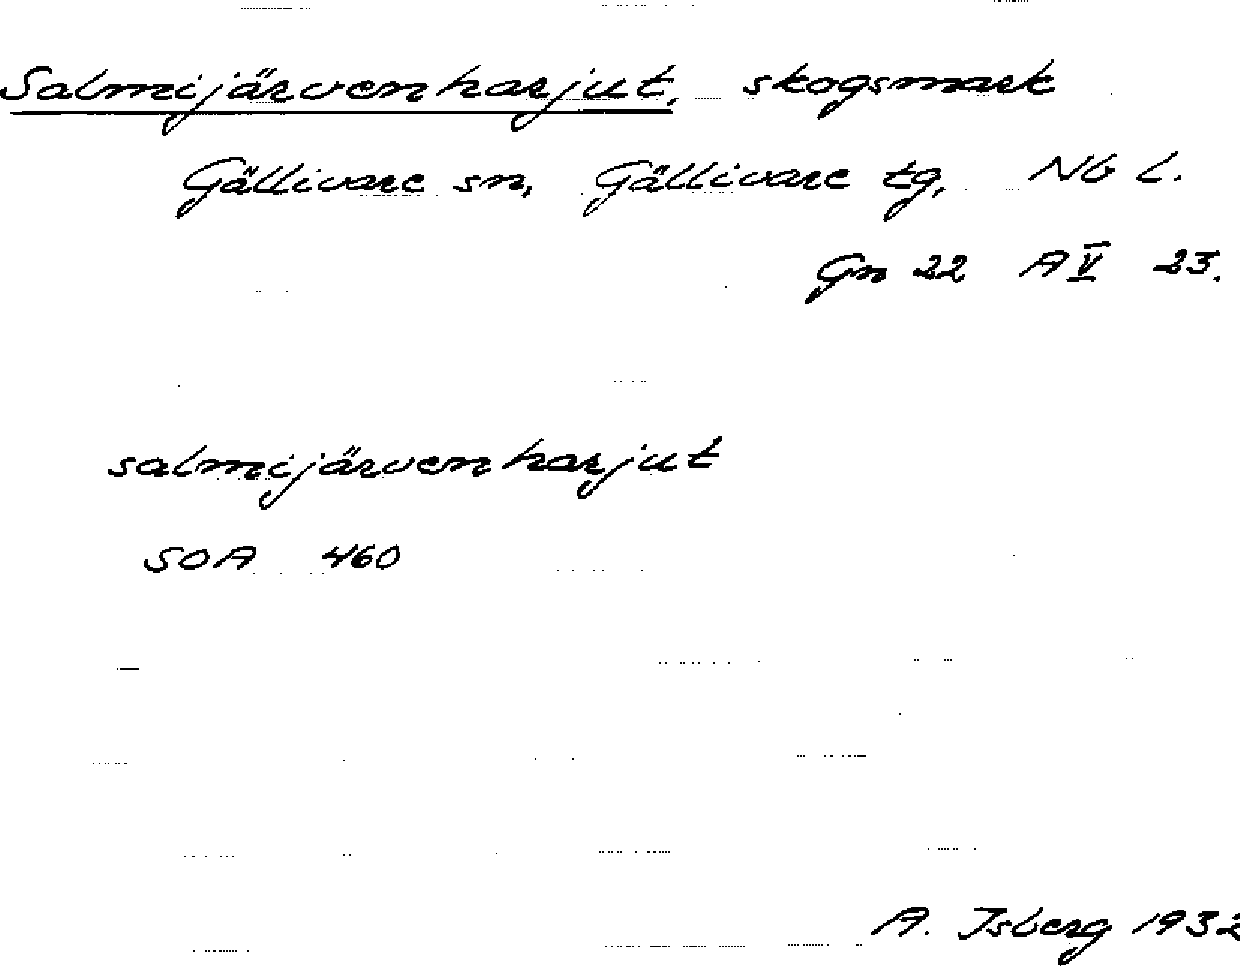 Salmijärvenharjut, skogsmark
Gällivare sn, Gällivare tg, Nb L.
Gn 22 A V 23.
salmijärvenharjut
SOA 460
A. Isberg 1932